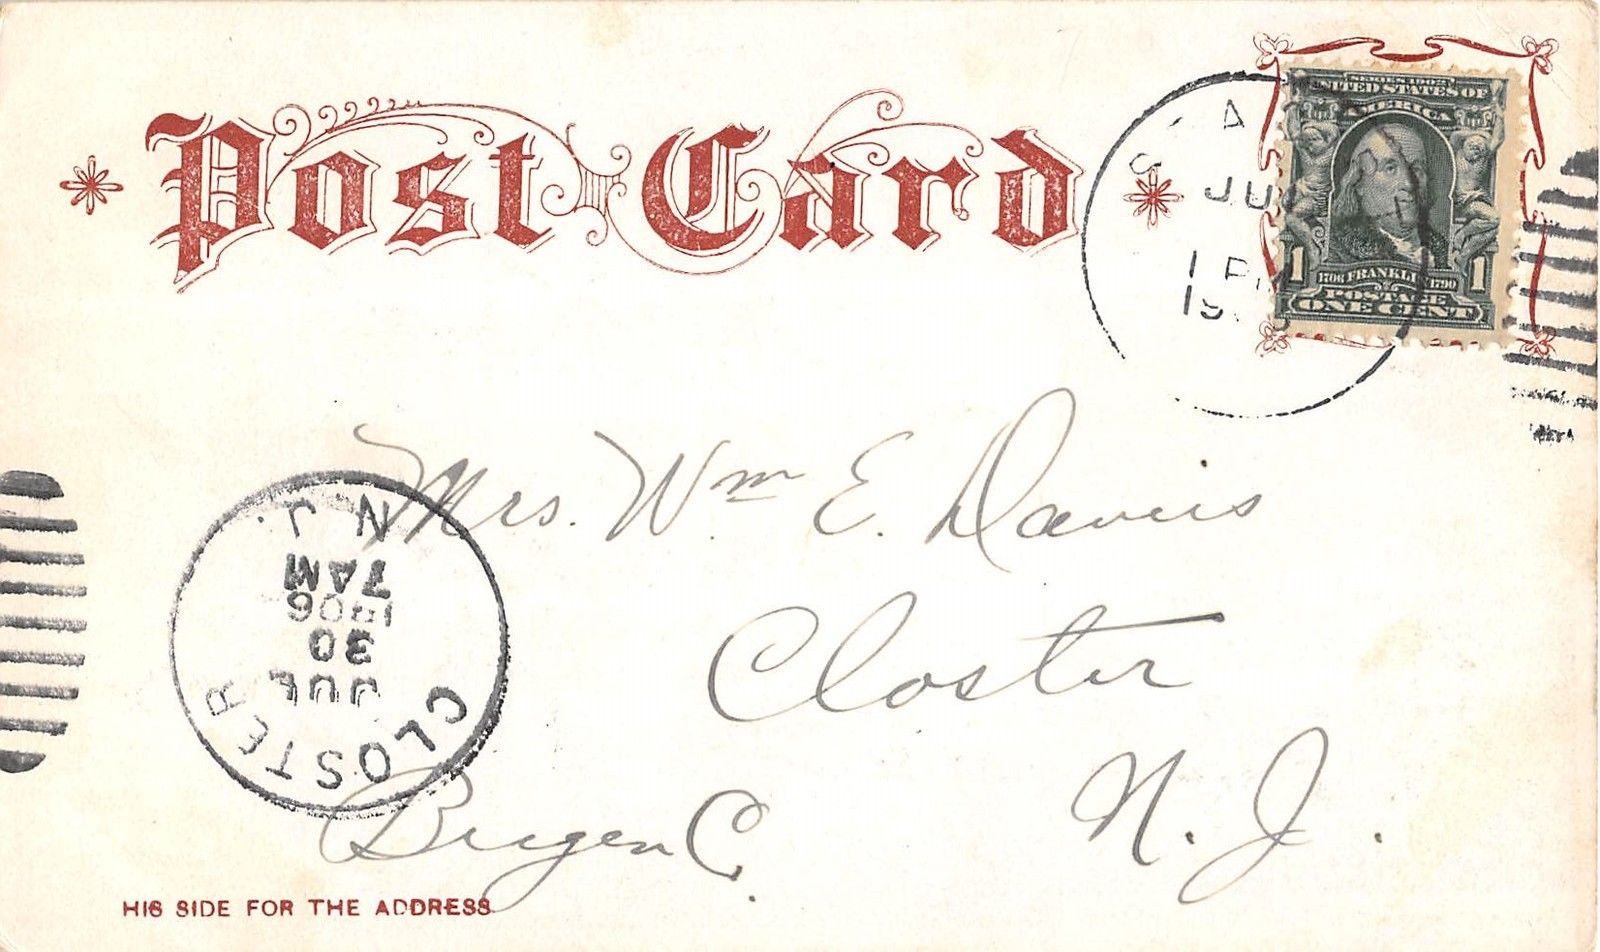 Post Card
SERIES 1902
UNITED STATES OF
AMERICA
1 1706 FRANKLIN 1790 1
POSTAGE
ONE CENT
Mrs. Wm E. Davies
Closter
Bergen C. N. J.
CLOSTER
JUL
30
1906
7 AM
N. J.
HIS SIDE FOR THE ADDRESS